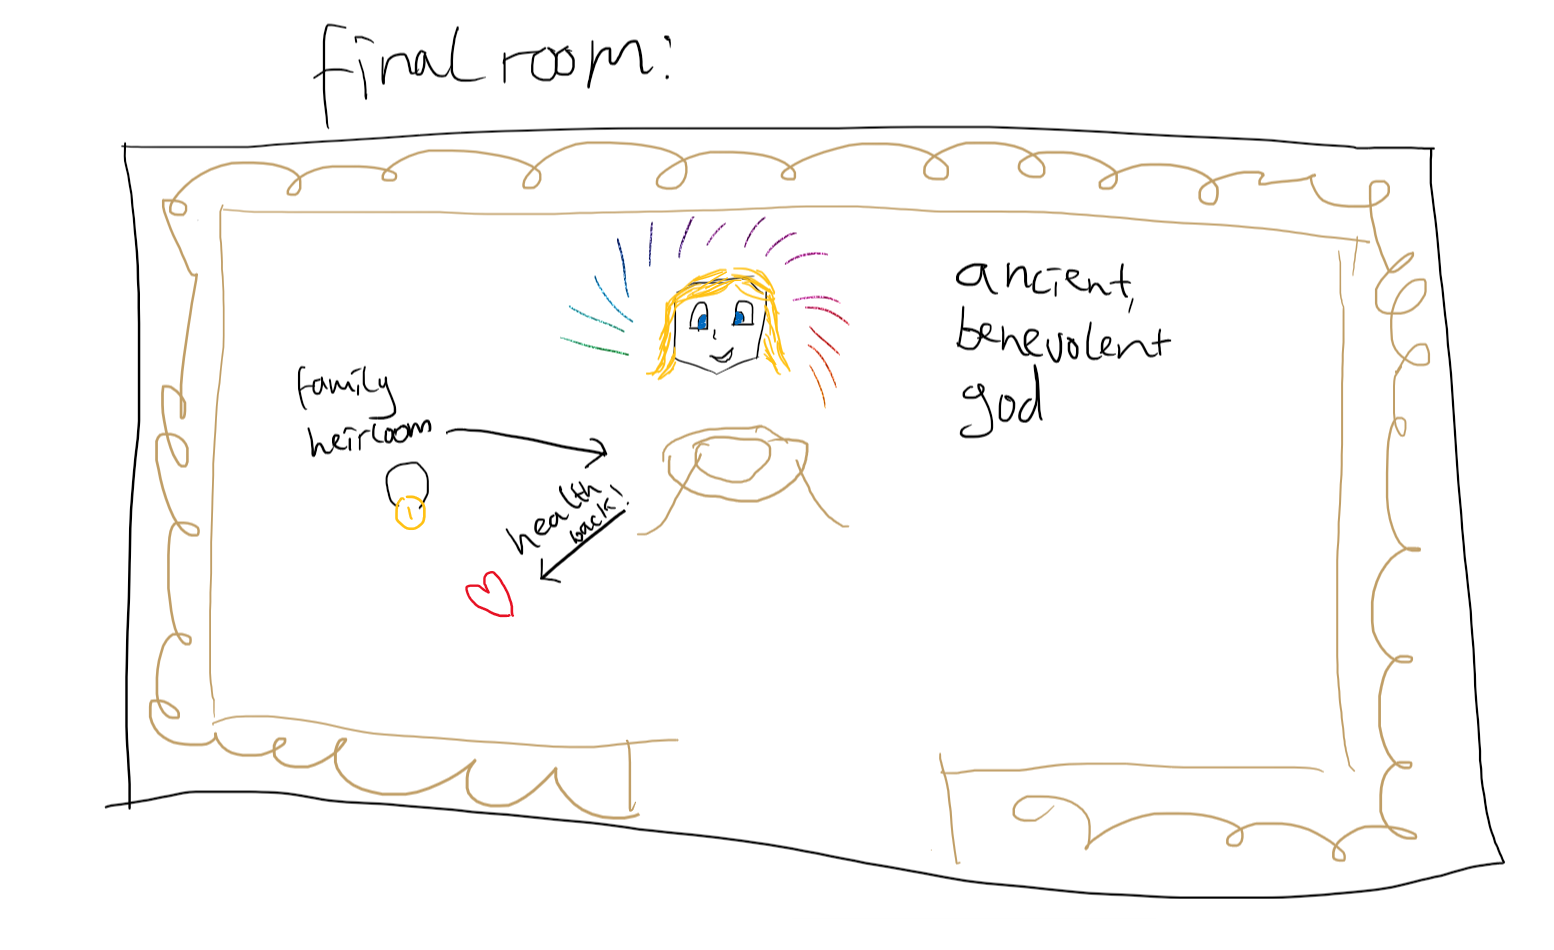 final room:
ancient,
benevolent
god
family
heirloom
health
back!
1